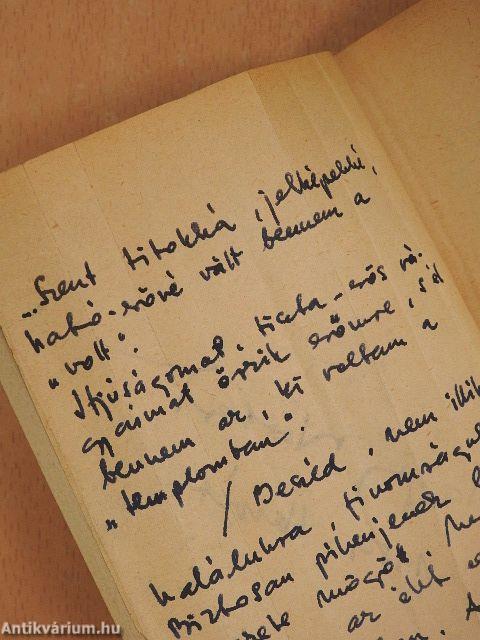 „Szent titokká, jelképekké,
ható-erővé vált bennem a
„volt".
Ifjúságomat, tiszta-erős vá-
gyaimat őrzik erőmre, s él
bennem az, ki voltam a
„templomban".
/ Becéld, nem illik
halálukra finomságo
Biztosan pihenjenek
mögött
az élet
A
Antikvárium.hu